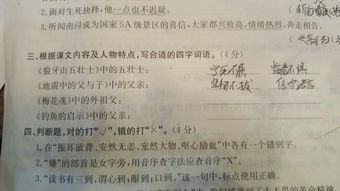 2. 面对生死抉择,他一点也不迟疑。
3. 听闻南浔成为国家5A级景区的喜信,大家都兴致高,情绪热烈,奔走相告。
三、根据课文内容及人物特点,写合适的四字词语。(4分)
《狼牙山五壮士》中的五壮士: 宁死不屈 临危不惧
《地震中的父与子》中的父亲: 坚韧不拔 信守诺言
《梅花魂》中的外祖父:
《钓鱼的启示》中的父亲:
四、判断题,对的打“√”,错的打“×”。(4分)
1. 在“振耳欲聋、安然无恙、宠然大物、呕心励血”中各有一个错别字。
2. “嫌”的部首是女字旁,用音序查字法应查音序“X”。
3. “读书有三到,谓心到;眼到;口到。”这一句中,标点使用正确。